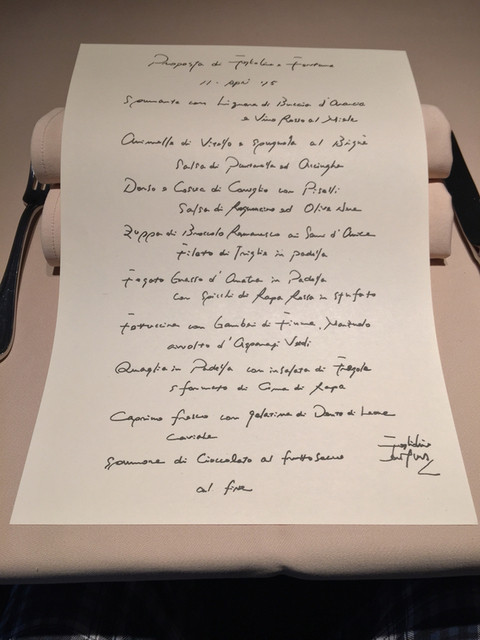 Proposta di
11 Apri '15
Spumante con Lingua di Buccia d'Arancia
e Vino Rosso al Miele
Animella di Vitello e Spugnola al Brignè
Salsa di ed Acciughe
Dorso e Coscia di Coniglio con Piselli
Salsa di Rosmarino ed Olive Nere
Zuppa di Broccolo Romanesco ai Semi d'Anice
Filetto di Triglia in padella
Fegato Grasso d'Anatra in Padella
con Spicchi di Rapa Rossa in
Fettuccine con Gamberi di Fiume,
avvolto d'Asparagi Verdi
Quaglia in Padella con insalata di Fregola
Sformato di Cima di Rapa
Caprino fresco con gelatina di Dente di Leone
Caviale
Spumone di Cioccolato al frutto secco
al fine